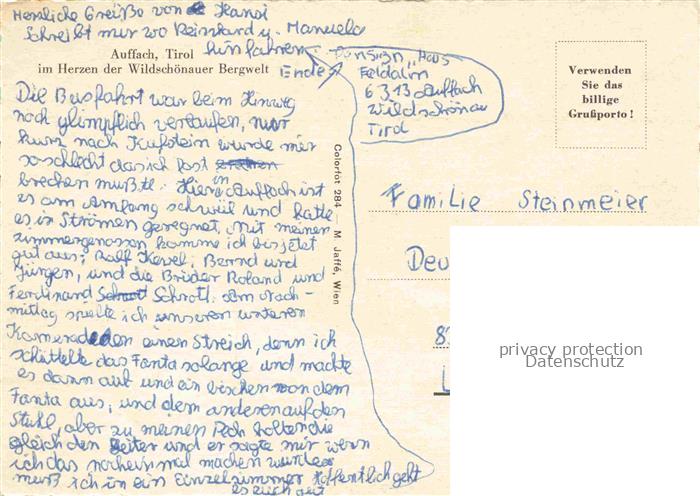 Herzliche Greiße von Hansi
Schreibt mir wo Reinhard u. Manuela
hinfahren.
Ende
Pension „Haus
Feldalm
6313 Auffach
Wildschönau
Tirol
Auffach, Tirol
im Herzen der Wildschönauer Bergwelt
Verwenden
Sie das
billige
Grußporto!
Die Busfahrt war beim Hinweg
noch glimpflich verlaufen, nur
kurz nach Kufstein wurde mir
so schlecht das ich fast
brechen mußte. Hier in Auffach ist
es am Anfang schwül und hatte
es in Strömen geregnet. Mit meinen
zimmergenossen komme ich bis jetzt
gut aus; Ralf Kevel; Bernd und
Jürgen, und die Brüder Roland und
Ferdinand Schrotl. Am Nach-
mittag spielte ich unseren unteren
Kameraden einen Streich, denn ich
schüttelte das Fanta solange und machte
es dann auf und ein bischen von dem
Fanta aus; und dem anderen auf den
Stuhl, aber zu meinen Pech holten die
gleich den Leiter und er sagte mir wenn
ich das nocheinmal machen wurde
muß ich in ein Einzelzimmer Hoffentlich geht
es euch gut
Colorfot 284 — M. Jaffé, Wien
Familie Steinmeier
Deu
8
privacy protection
Datenschutz